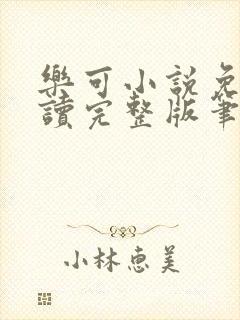 樂可小說免
讀完整版筆
小林惠美